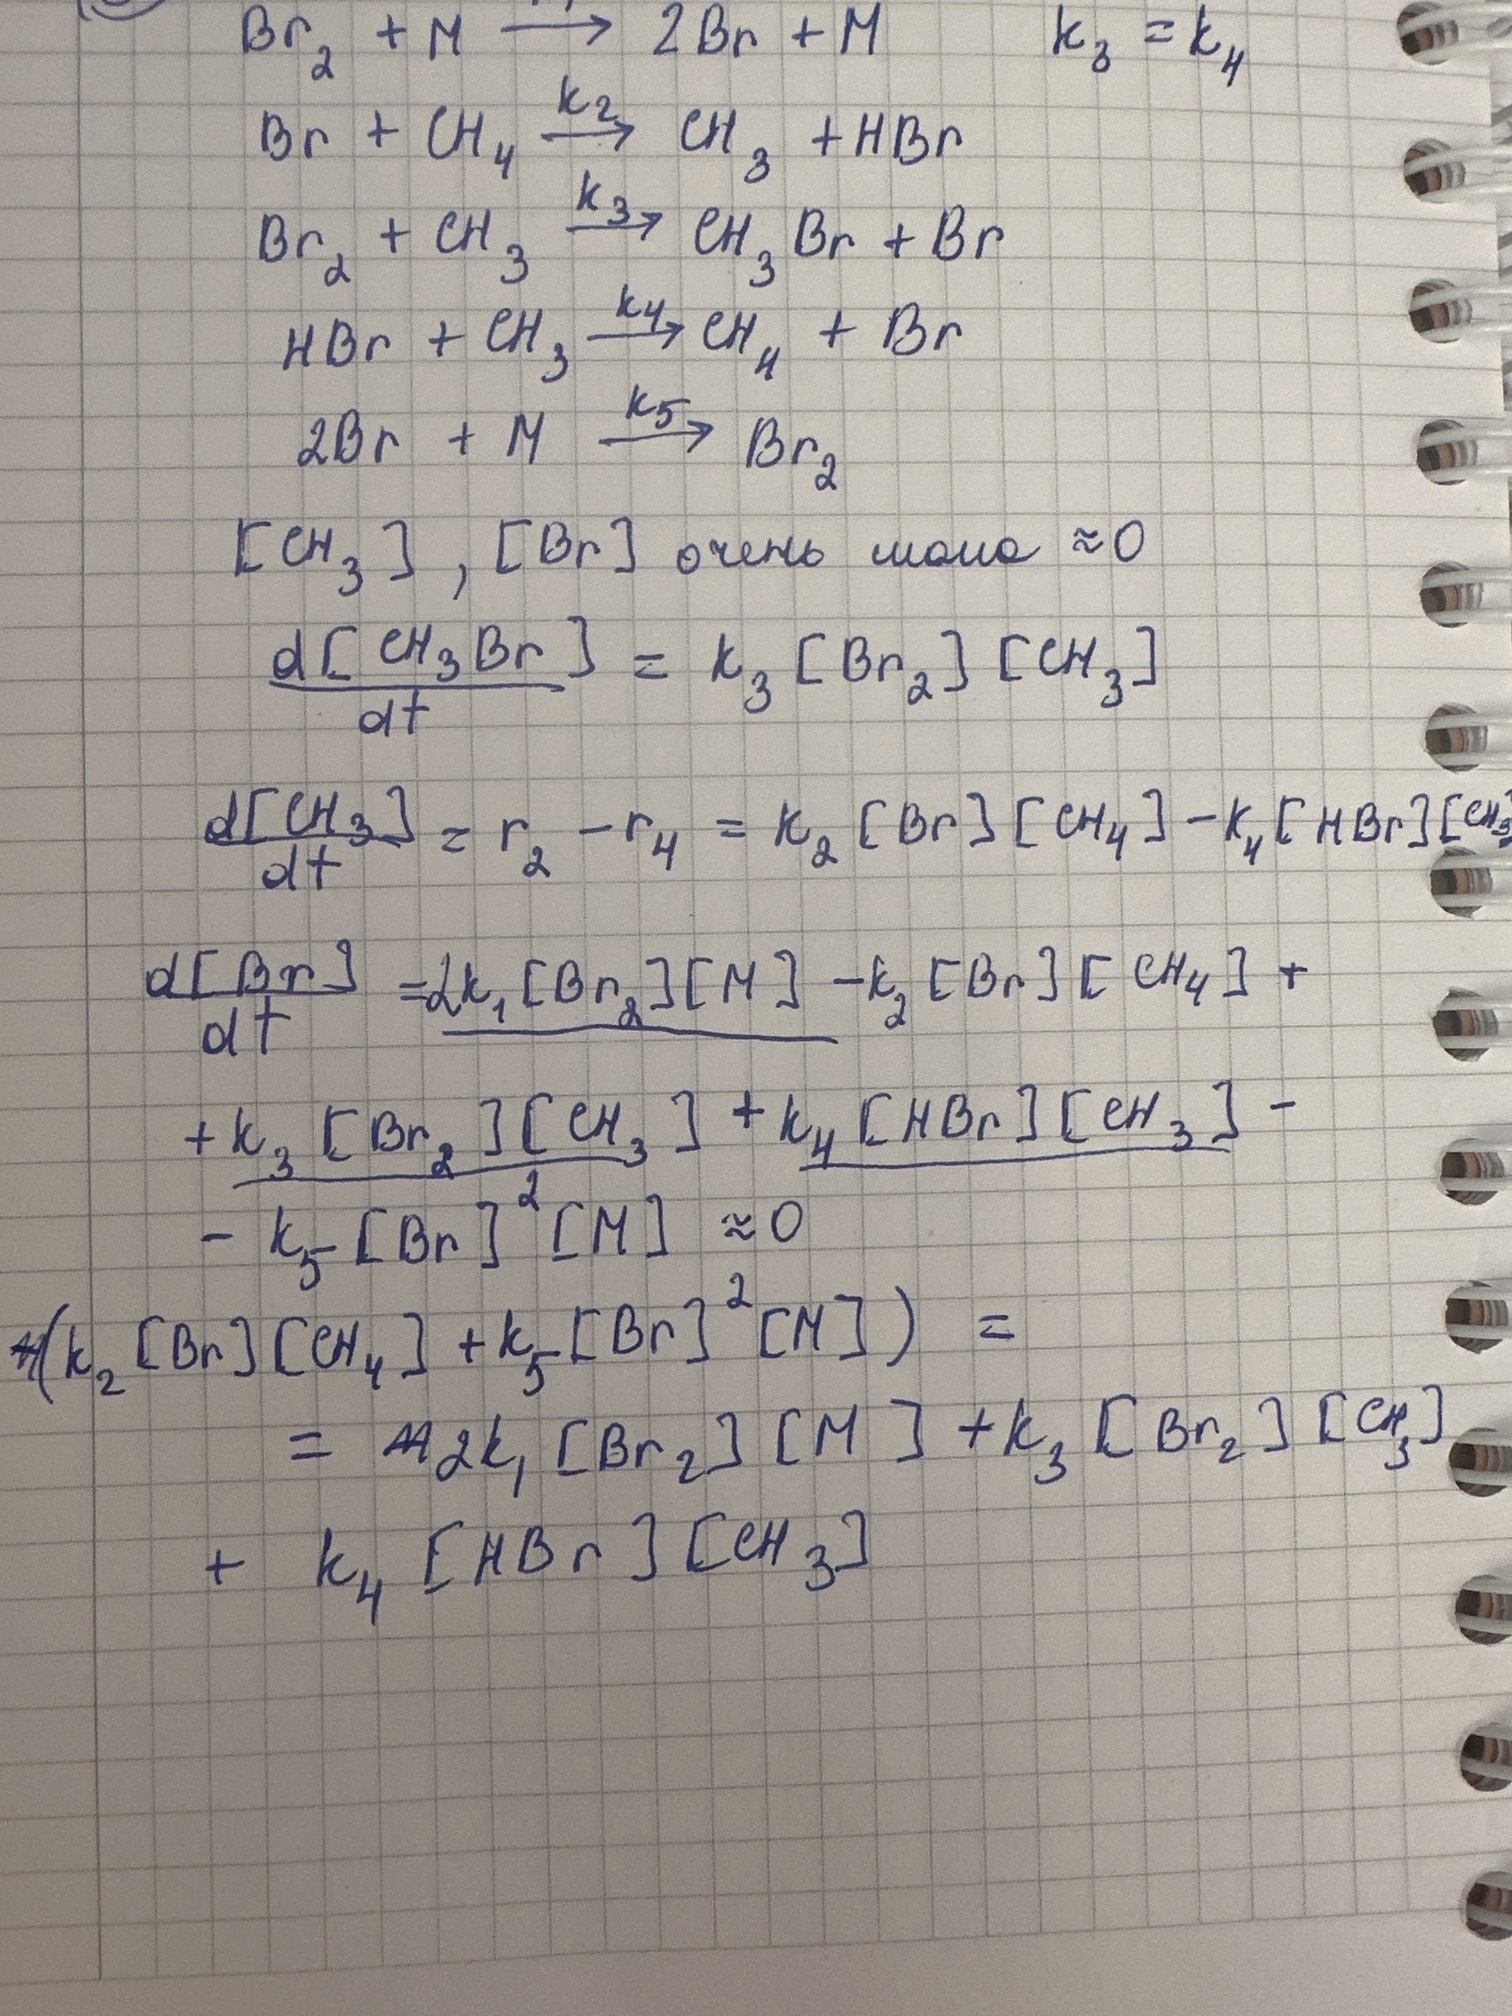 Br₂ + M ⟶ 2Br + M k₃ = k₄
Br + CH₄ —k₂→ CH₃ + HBr
Br₂ + CH₃ —k₃→ CH₃Br + Br
HBr + CH₃ —k₄→ CH₄ + Br
2Br + M —k₅→ Br₂
[CH₃], [Br] очень мало ≈0
d[CH₃Br]/dt = k₃[Br₂][CH₃]
d[CH₃]/dt = r₂ − r₄ = k₂[Br][CH₄] − k₄[HBr][CH₃]
d[Br]/dt = 2k₁[Br₂][M] − k₂[Br][CH₄] +
+ k₃[Br₂][CH₃] + k₄[HBr][CH₃] −
− k₅[Br]²[M] ≈0
(k₂[Br][CH₄] + k₅[Br]²[M]) =
= 2k₁[Br₂][M] + k₃[Br₂][CH₃]
+ k₄[HBr][CH₃]